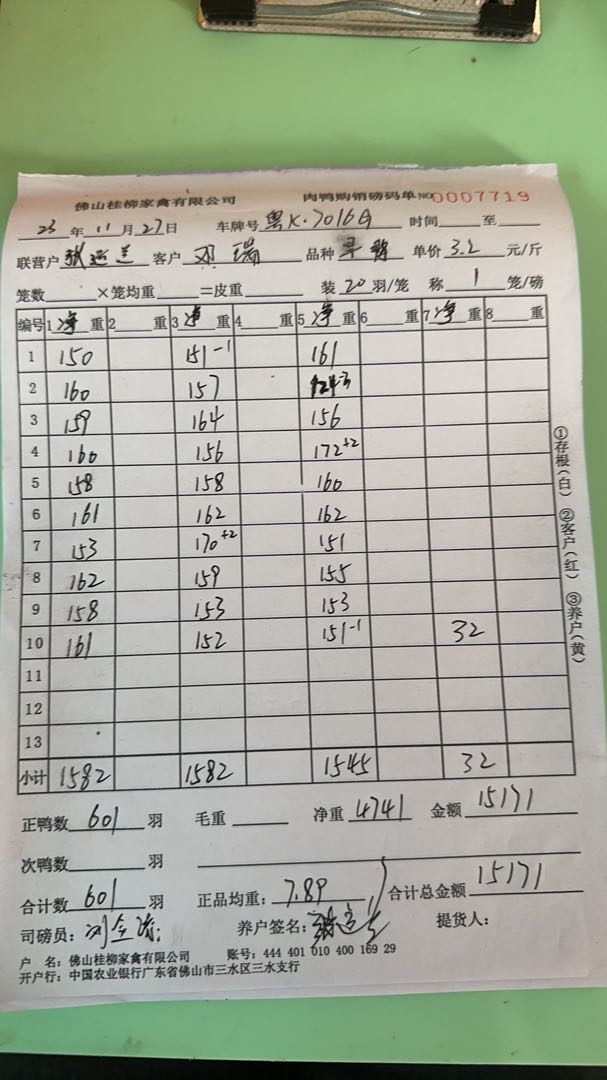 佛山桂柳家禽有限公司 肉鸭购销磅码单 NO 0007719
23 年 11 月 27 日 车牌号 粤K·7016A 时间 至
联营户 客户 邓 瑞 品种 单价 3.2 元/斤
笼数 ×笼均重 =皮重 装 20 羽/笼 称 1 笼/磅
编号 1 净 重 2 重 3 净 重 4 重 5 净 重 6 重 7 净 重 8 重
1 150 151-1 161
2 160 157 124-3
3 159 164 156
4 160 156 172+2
5 158 158 160
6 161 162 162
7 153 170+2 151
8 162 159 155
9 158 153 153
10 161 152 151-1 32
11
12
13
小计 1582 1582 1545 32
①存根(白) ②客户(红) ③养户(黄)
正鸭数 601 羽 毛重 净重 4741 金额 15171
次鸭数 羽
合计数 601 羽 正品均重: 7.89 合计总金额 15171
司磅员: 养户签名: 提货人:
户 名: 佛山桂柳家禽有限公司 账号: 444 401 010 400 169 29
开户行: 中国农业银行广东省佛山市三水区三水支行